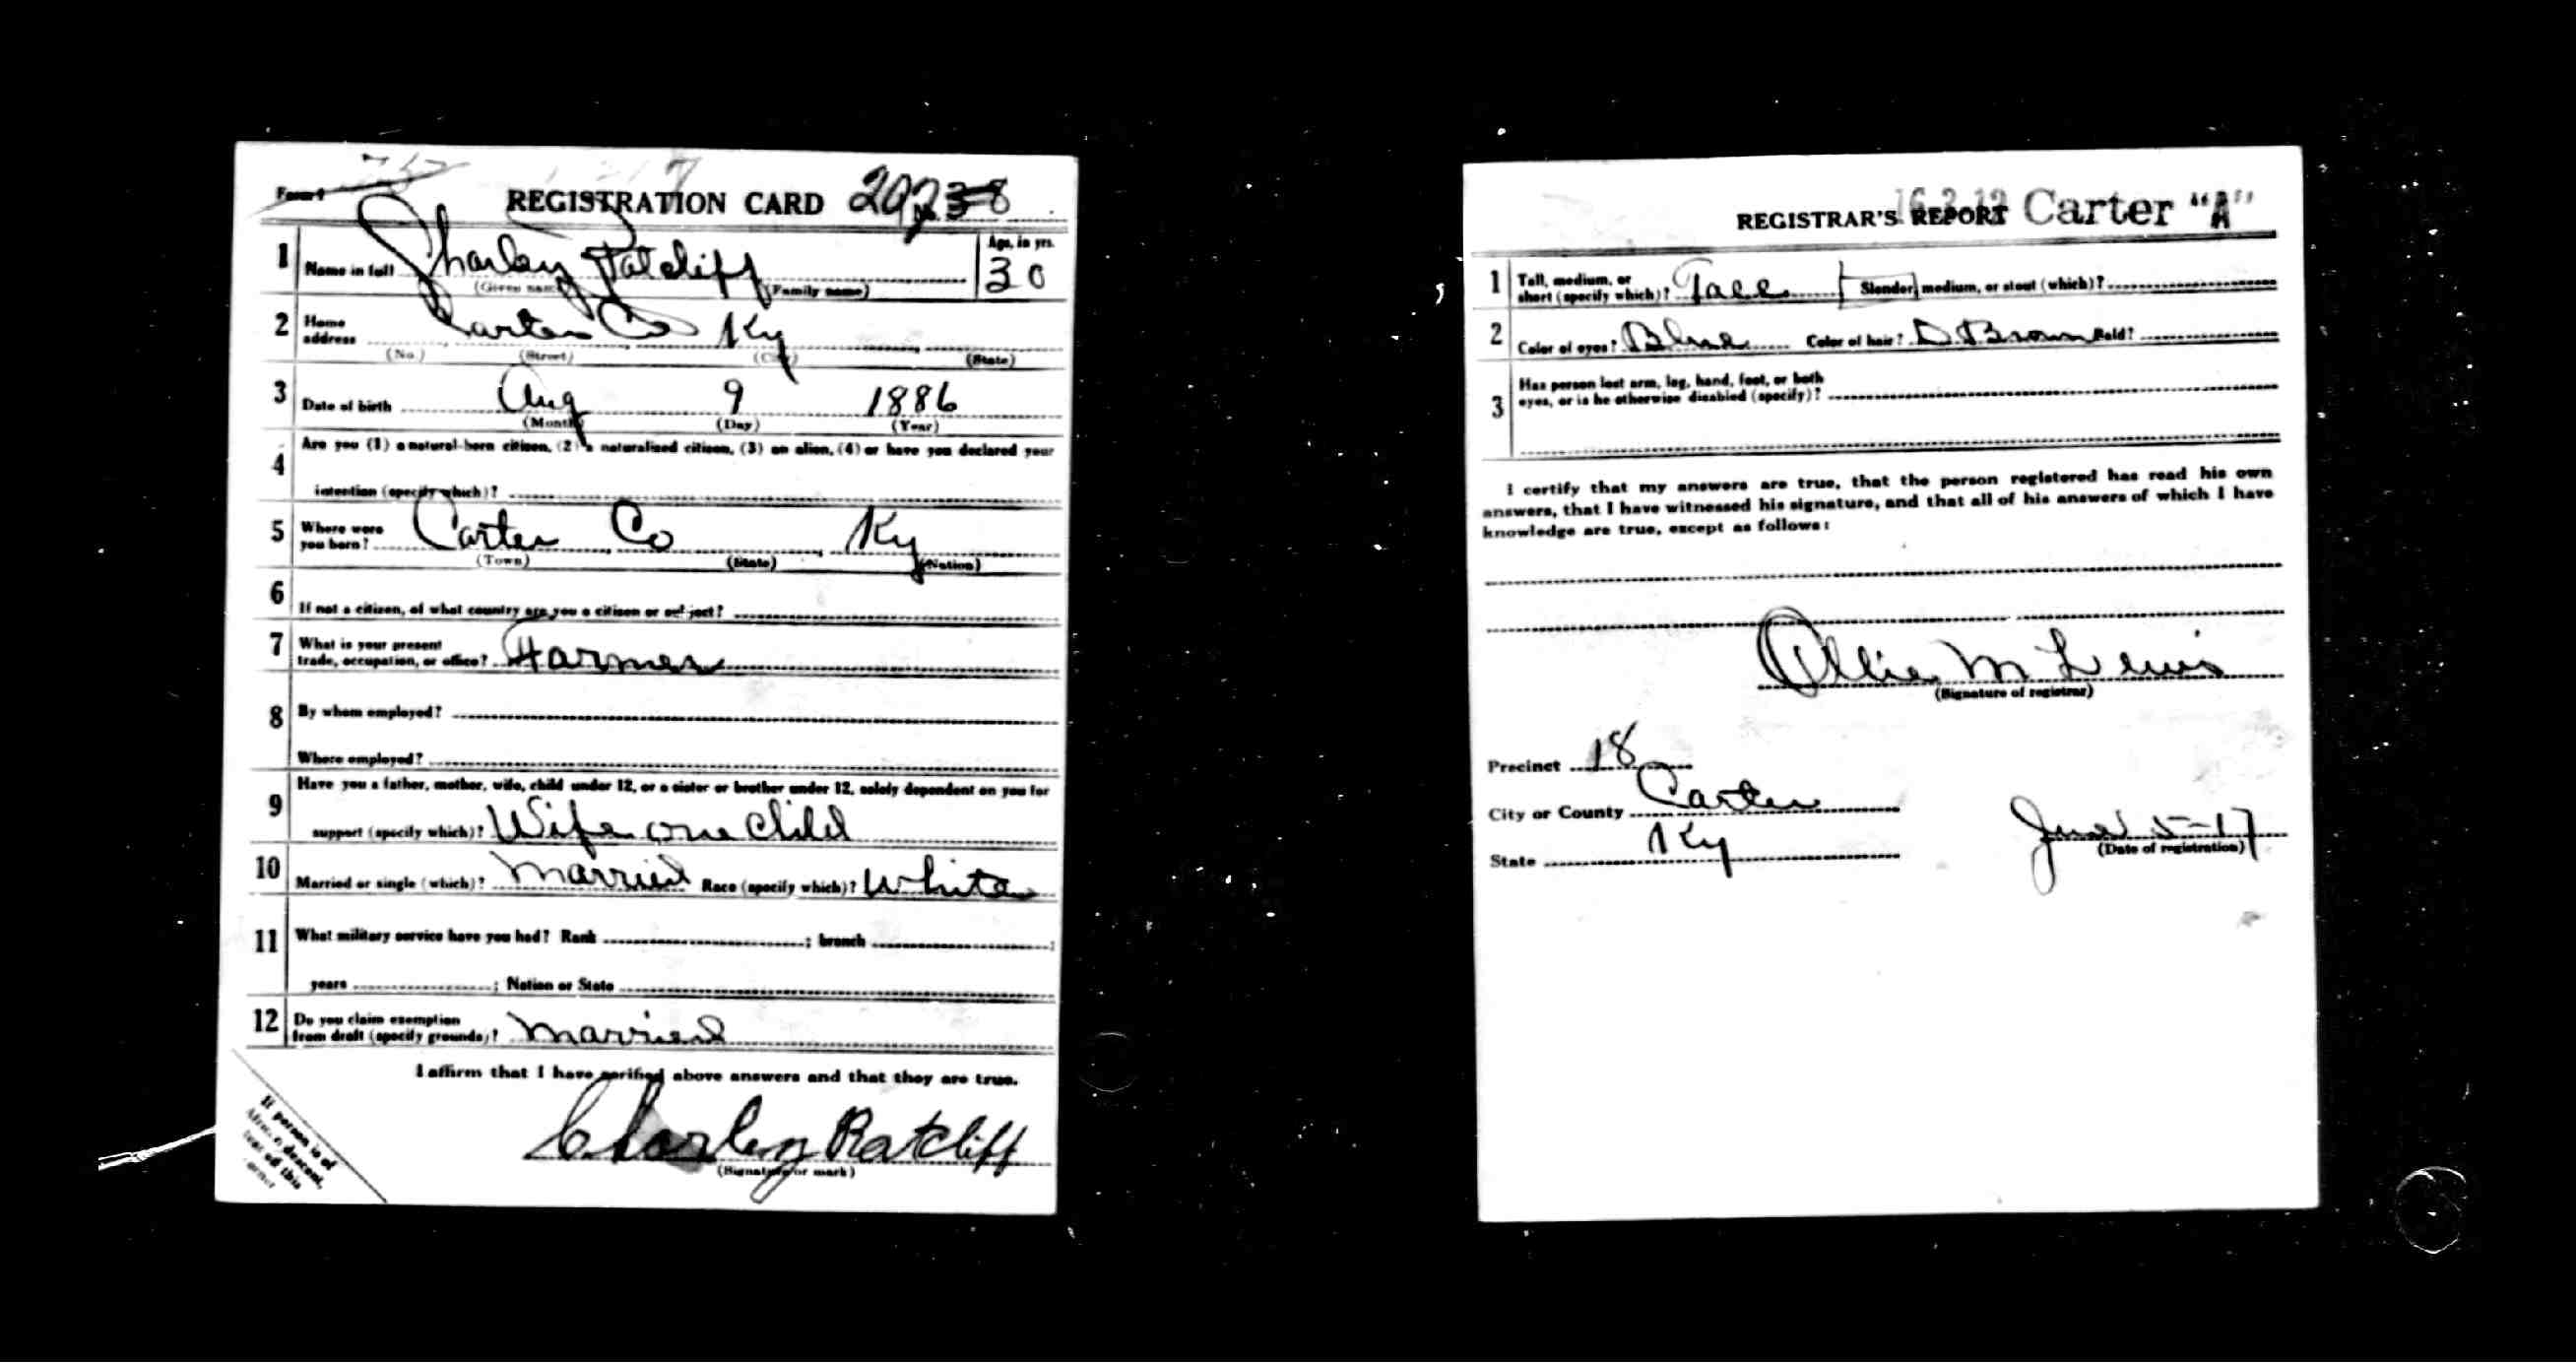 Form 1 REGISTRATION CARD
1 Name in full Charley Ratcliff Age, in yrs. 30
(Given name) (Family name)
2 Home address Carter Co Ky
(No.) (Street) (City) (State)
3 Date of birth Aug 9 1886
(Month) (Day) (Year)
4 Are you (1) a natural-born citizen, (2) a naturalized citizen, (3) an alien, (4) or have you declared your
intention (specify which)?
5 Where were you born? Carter Co Ky
(Town) (State) (Nation)
6 If not a citizen, of what country are you a citizen or subject?
7 What is your present trade, occupation, or office? Farmer
8 By whom employed?
Where employed?
9 Have you a father, mother, wife, child under 12, or a sister or brother under 12, solely dependent on you for
support (specify which)? Wife one child
10 Married or single (which)? Married Race (specify which)? White
11 What military service have you had? Rank ; branch ;
years ; Nation or State
12 Do you claim exemption from draft (specify grounds)? Married
I affirm that I have verified above answers and that they are true.
Charley Ratcliff
(Signature or mark)
If person is of
African descent,
tear off this
corner
REGISTRAR'S REPORT Carter "A"
1 Tall, medium, or short (specify which)? Tall Slender, medium, or stout (which)?
2 Color of eyes? Blue Color of hair? D. Brown Bald?
3 Has person lost arm, leg, hand, foot, or both
eyes, or is he otherwise disabled (specify)?
I certify that my answers are true, that the person registered has read his own
answers, that I have witnessed his signature, and that all of his answers of which I have
knowledge are true, except as follows:
Ollie M Lewis
(Signature of registrar)
Precinct 18
City or County Carter
State Ky
June 5-17
(Date of registration)